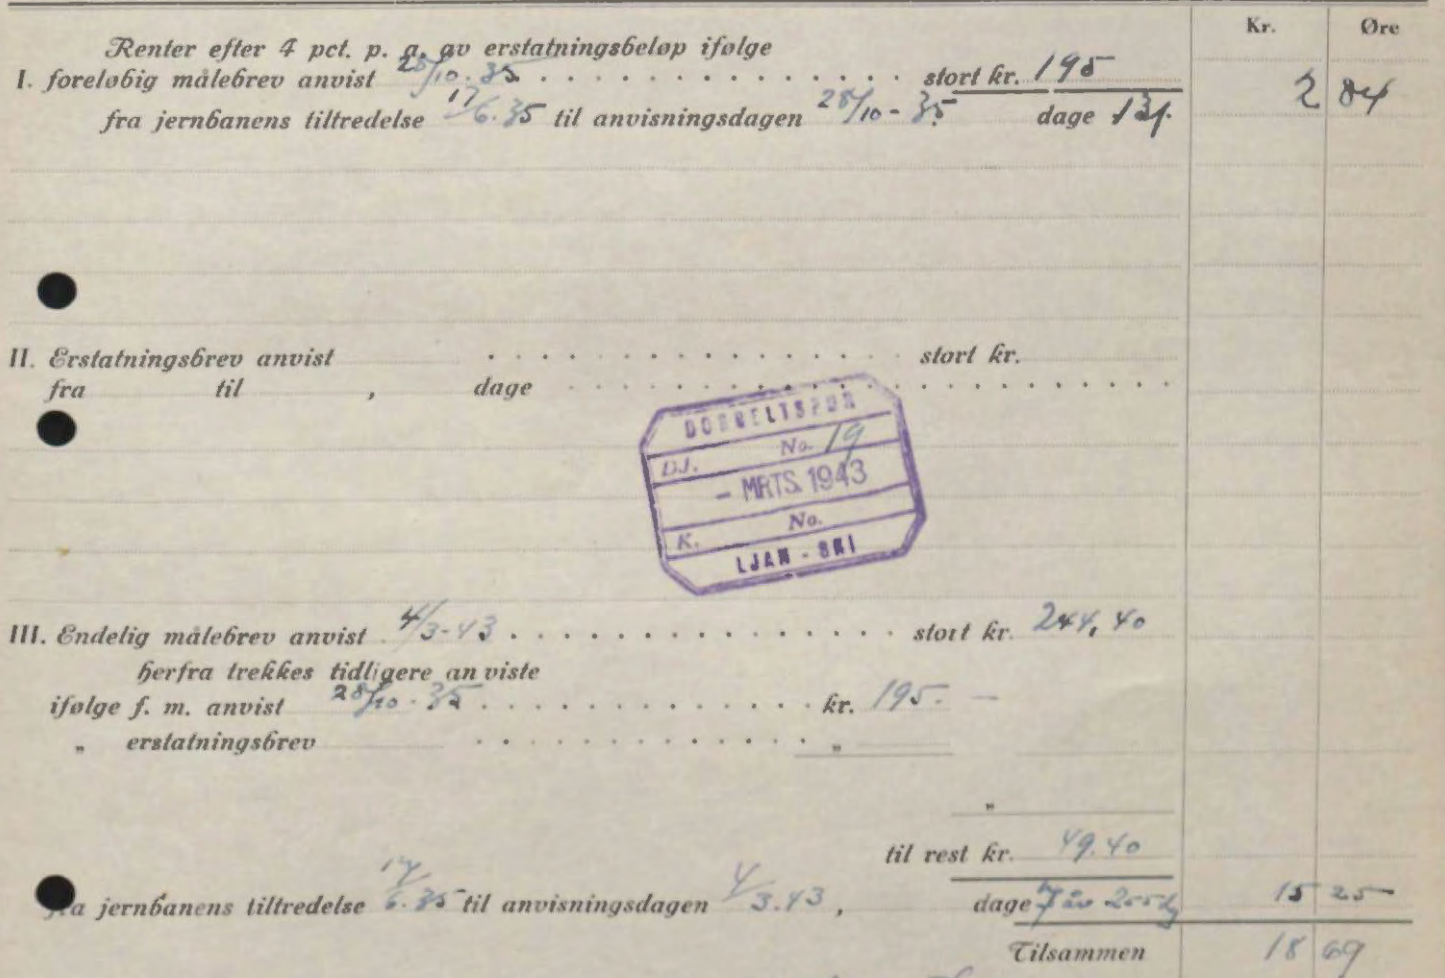 Kr. Øre
Renter efter 4 pct. p. a. av erstatningsbeløp ifølge
I. foreløbig målebrev anvist 28/10-35 stort kr. 195
fra jernbanens tiltredelse 17/6.35 til anvisningsdagen 28/10-35 dage 131. 2 84
II. Erstatningsbrev anvist stort kr.
fra til , dage
DOBBELTSPOR
DJ. No. 19
- MRTS. 1943
K. No.
LJAN - SKI
III. Endelig målebrev anvist 4/3-43 stort kr. 244,40
herfra trekkes tidligere anviste
ifølge f. m. anvist 28/10-35 kr. 195.-
„ erstatningsbrev „
„
til rest kr. 49.40
fra jernbanens tiltredelse 17/6.35 til anvisningsdagen 4/3.43, dage 7 år 255 dg 15 25
Tilsammen 18 69